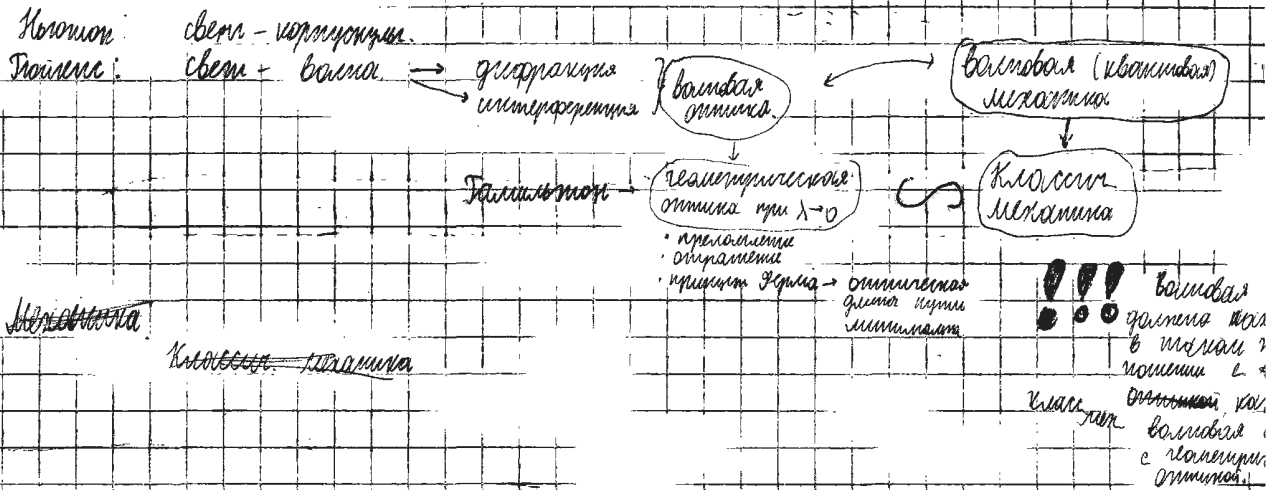 Ньютон: свет - корпускулы.
Гюйгенс: свет - волна → дифракция
интерференция
волновая
оптика.
волновая (квантовая)
механика
Гамильтон → геометрическая
оптика при λ→0
классич
механика
· преломление
· отражение
· принцип Ферма → оптическая
длина пути
минимальна
Механика
Классич. механика
!!! Волновая
должна
в таком
с
класс мех оптикой
волновая
с геометри
оптикой.